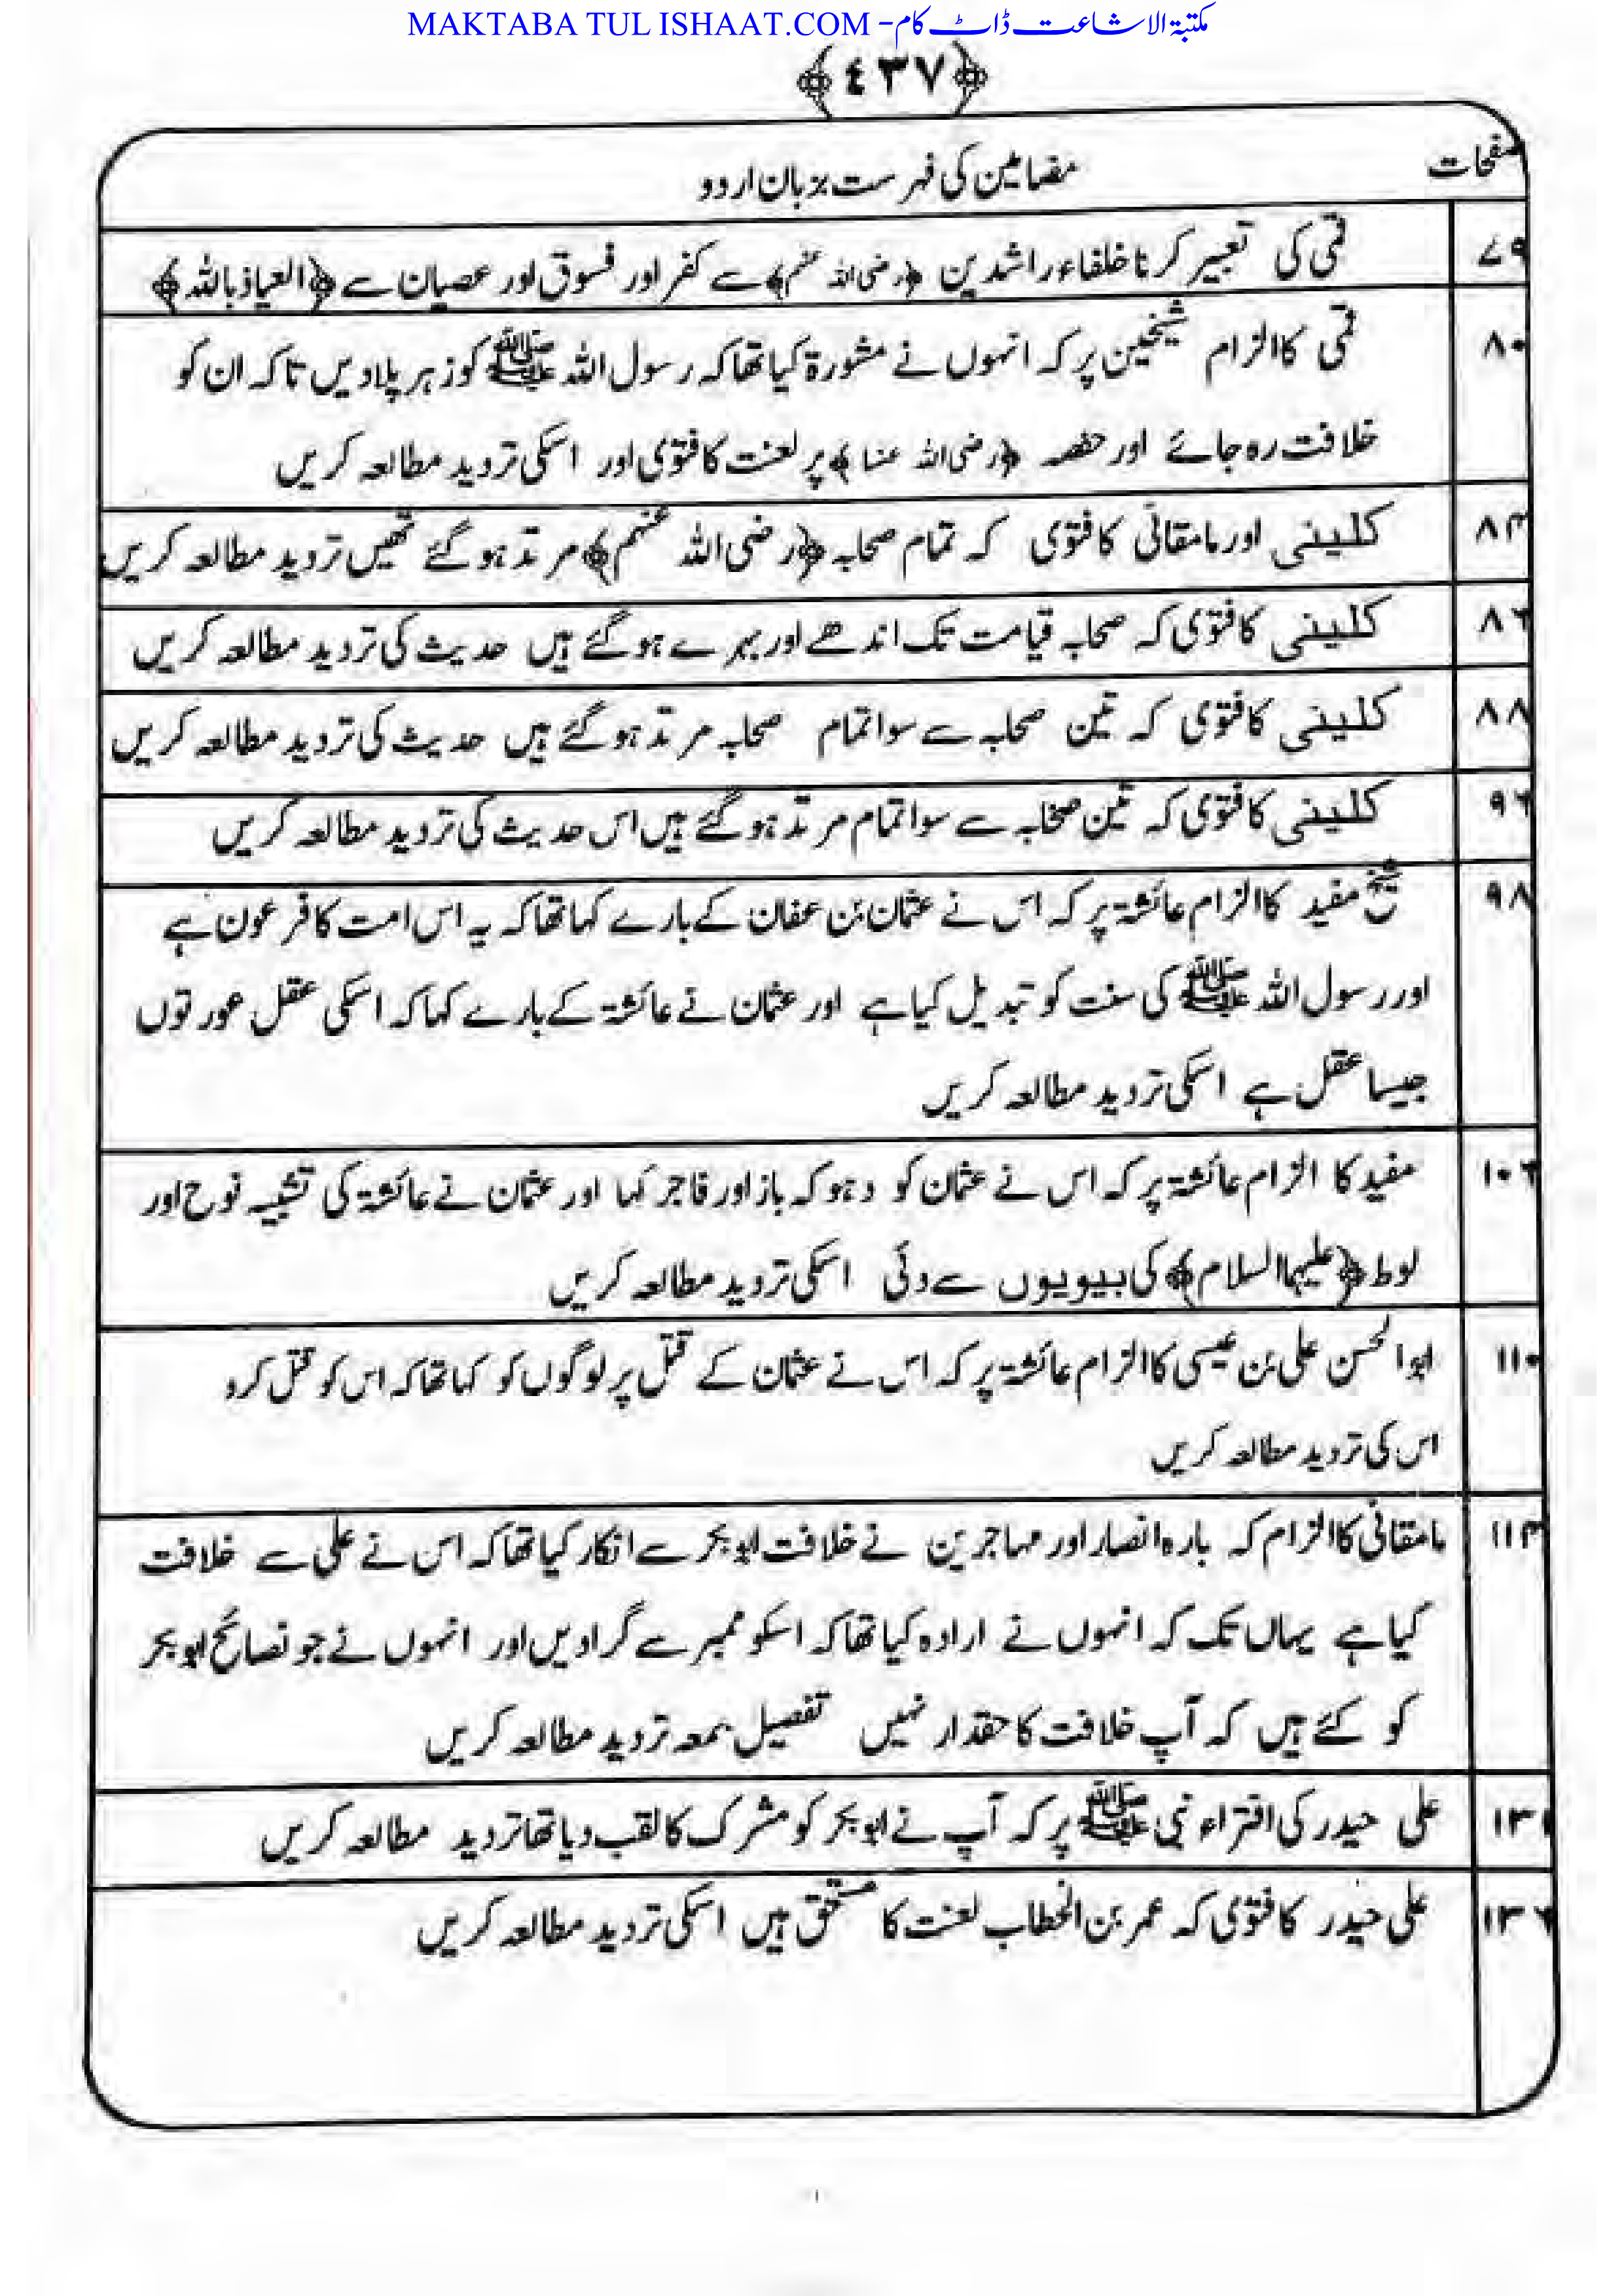 MAKTABA TUL ISHAAT.COM -مکتبۃ الاشاعت ڈاٹ کام
﴿٤٣٧﴾
صفحات
مضامین کی فہرست بزبان اردو
٧٩
قمی کی تعبیر کرنا خلفاء راشدین ﴿رضی اللہ عنہم﴾ سے کفر اور فسوق اور عصیان سے ﴿العیاذ باللہ﴾
٨٠
قمی کا الزام شیخین پر کہ انہوں نے مشورۃ کیا تھا کہ رسول اللہ ﷺ کو زہر پلا دیں تاکہ ان کو
خلافت رہ جائے اور حفصہ ﴿رضی اللہ عنہا﴾ پر لعنت کا فتوی اور اسکی تردید مطالعہ کریں
٨٣
کلینی اور مامقانی کا فتوی کہ تمام صحابہ ﴿رضی اللہ عنہم﴾ مرتد ہو گئے تھیں تردید مطالعہ کریں
٨٦
کلینی کا فتوی کہ صحابہ قیامت تک اندھے اور بہرے ہو گئے ہیں حدیث کی تردید مطالعہ کریں
٨٨
کلینی کا فتوی کہ تین صحابہ سے سوا تمام صحابہ مرتد ہو گئے ہیں حدیث کی تردید مطالعہ کریں
٩٦
کلینی کا فتوی کہ تین صحابہ سے سوا تمام مرتد ہو گئے ہیں اس حدیث کی تردید مطالعہ کریں
٩٨
شیخ مفید کا الزام عائشۃ پر کہ اس نے عثمان بن عفان کے بارے کہا تھا کہ یہ اس امت کا فرعون ہے
اور رسول اللہ ﷺ کی سنت کو تبدیل کیا ہے اور عثمان نے عائشۃ کے بارے کہا کہ اسکی عقل عورتوں
جیسا عقل ہے اسکی تردید مطالعہ کریں
١٠٦
مفید کا الزام عائشۃ پر کہ اس نے عثمان کو دہوکہ باز اور فاجر کہا اور عثمان نے عائشۃ کی تشبیہ نوح اور
لوط ﴿علیہما السلام﴾ کی بیویوں سے دئی اسکی تردید مطالعہ کریں
١١٠
ابو الحسن علی بن عیسی کا الزام عائشۃ پر کہ اس نے عثمان کے قتل پر لوگوں کو کہا تھا کہ اس کو قتل کرو
اس کی تردید مطالعہ کریں
١١٣
مامقانی کا الزام کہ بارہ انصار اور مہاجرین نے خلافت ابو بکر سے انکار کیا تھا کہ اس نے علی سے خلافت
کیا ہے یہاں تک کہ انہوں نے ارادہ کیا تھا کہ اسکو ممبر سے گرا دیں اور انہوں نے جو نصائح ابو بکر
کو کئے ہیں کہ آپ خلافت کا حقدار نہیں تفصیل بمعہ تردید مطالعہ کریں
١٣١
علی حیدر کی افتراء نبی ﷺ پر کہ آپ نے ابو بکر کو مشرک کا لقب دیا تھا تردید مطالعہ کریں
١٣٦
علی حیدر کا فتوی کہ عمر بن الخطاب لعنت کا مستحق ہیں اسکی تردید مطالعہ کریں